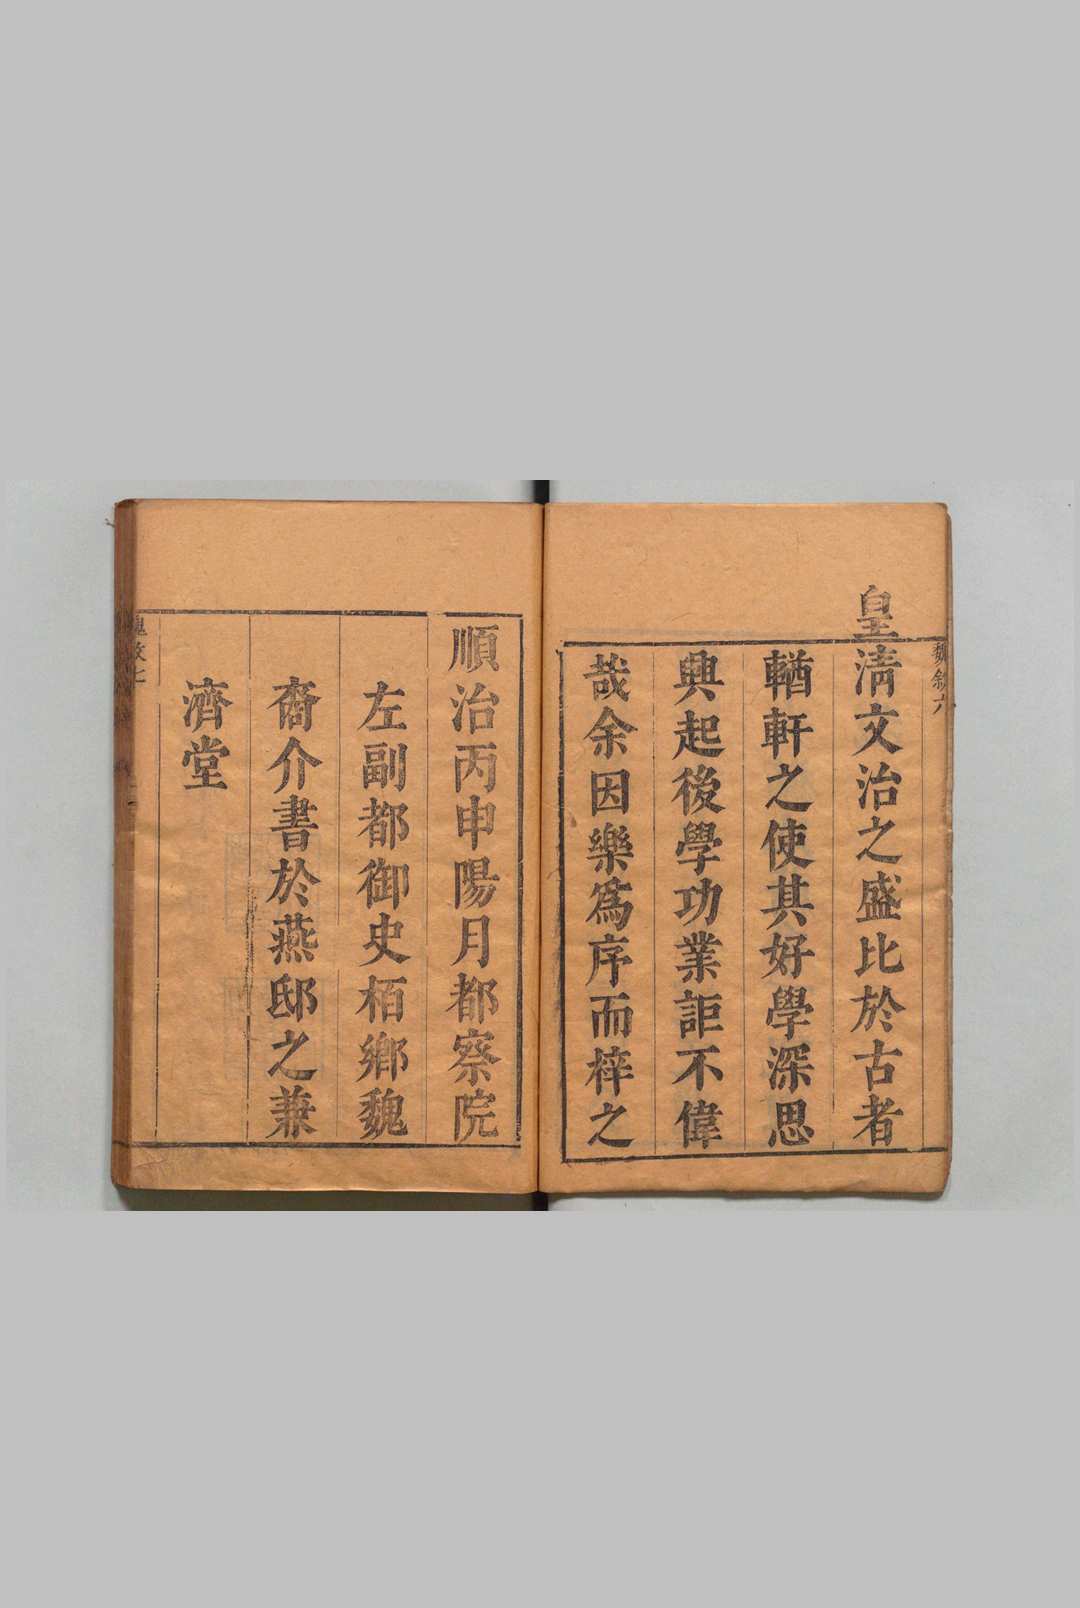 魏敘六
皇清文治之盛比於古者
輶軒之使其好學深思
興起後學功業詎不偉
哉余因樂爲序而梓之
順治丙申陽月都察院
左副都御史栢鄉魏
裔介書於燕邸之兼
濟堂